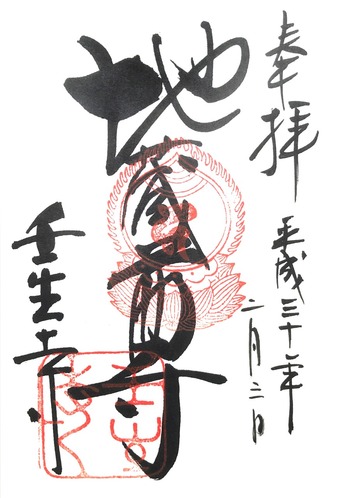 奉拝
平成三十年
二月二日
地蔵尊
壬生寺